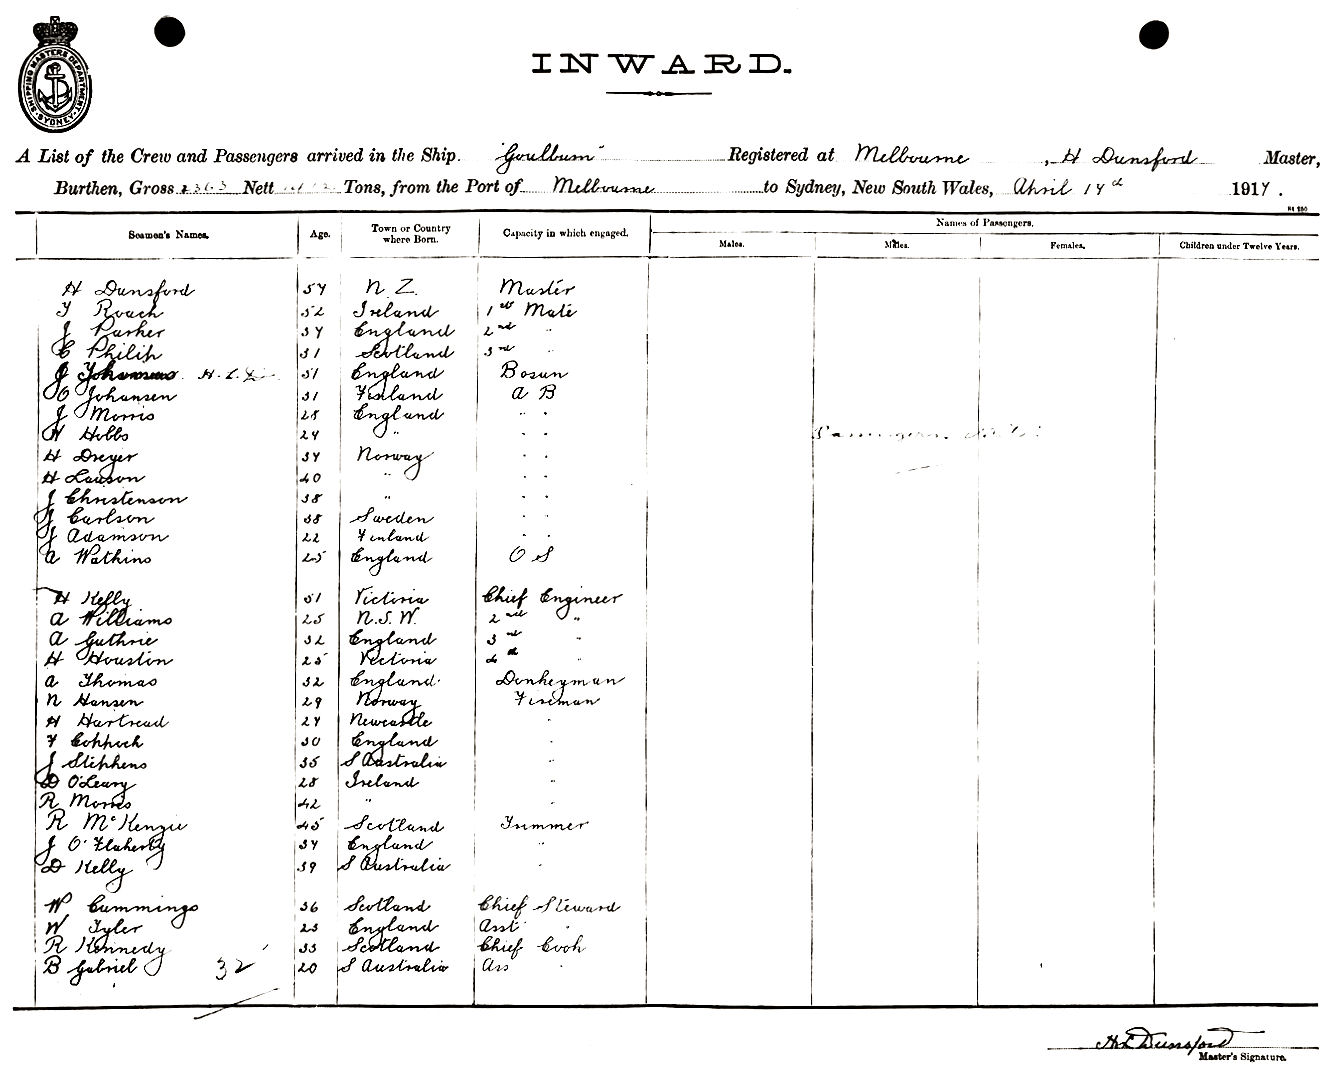 SHIPPING MASTERS DEPARTMENT SYDNEY
INWARD.
A List of the Crew and Passengers arrived in the Ship. "Goulburn" Registered at Melbourne, H Dunsford Master,
Burthen, Gross Nett Tons, from the Port of Melbourne to Sydney, New South Wales, April 14th 1917.
Names of Passengers.
Seamen's Names. Age. Town or Country where Born. Capacity in which engaged. Males. Males. Females. Children under Twelve Years.
H Dunsford 57 N.Z. Master
Roach 52 Ireland 1st Mate
J Parker 37 England 2nd "
C Philip 31 Scotland 3rd "
51 England Bosun
O Johansen 31 Finland A B
J Morris 28 England " "
Hobbs 24 " " "
Passengers
H Dreyer 37 Norway " "
H 40 " " "
J Christenson 38 " " "
J Carlson 38 Sweden " "
J Adamson 22 Finland " "
A Watkins 25 England O S
H Kelly 51 Victoria Chief Engineer
A Williams 25 N.S.W. 2nd "
A Guthrie 32 England 3rd "
H Houston 25 Victoria 4th "
A Thomas 32 England Donkeyman
N Hansen 29 Norway Fireman
H Hartread 27 Newcastle "
Coppock 30 England "
J Stephens 35 S Australia "
D O'Leary 28 Ireland "
R Morris 42 " "
R McKenzie 45 Scotland Trimmer
J O'Flaherty 37 England "
D Kelly 39 S Australia "
W Cummings 36 Scotland Chief Steward
W Tyler 23 England Asst "
R Kennedy 33 Scotland Chief Cook
B Gabriel 32 20 S Australia Ass "
H Dunsford
Master's Signature.